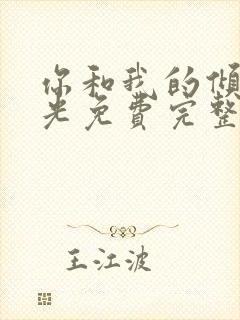 你和我的倾
光免费完整
王江波